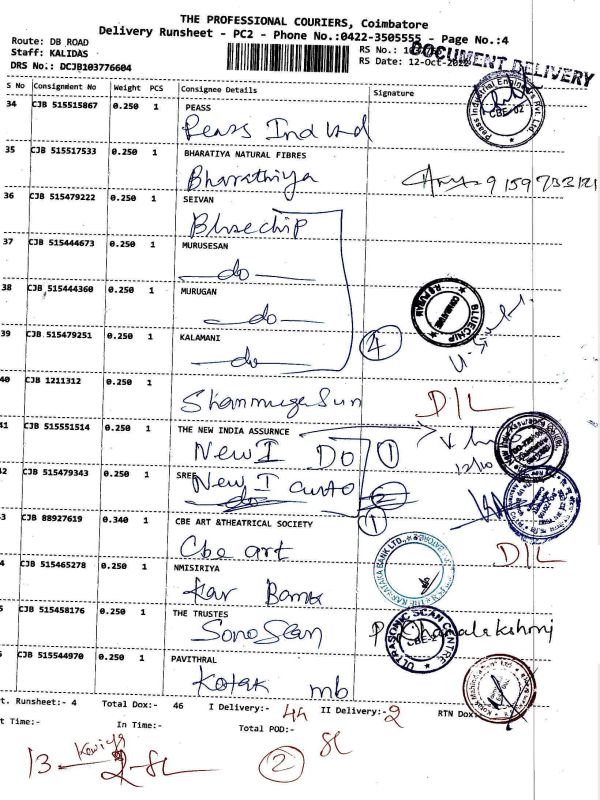 THE PROFESSIONAL COURIERS, Coimbatore
Delivery Runsheet - PC2 - Phone No.:0422-3505555 - Page No.:4
Route: DB_ROAD
Staff: KALIDAS RS No.:
DOCUMENT DELIVERY
DRS No.: DCJB103776604 RS Date: 12-Oct-
S No Consignment No Weight PCS Consignee Details Signature
34 CJB 515515867 0.250 1 PEASS
Peass Ind Ltd
Peass Industrial Engineers Pvt. Ltd.
CBE-02
35 CJB 515517533 0.250 1 BHARATIYA NATURAL FIBRES
Bharathiya
36 CJB 515479222 0.250 1 SEIVAN
Bluechip
37 CJB 515444673 0.250 1 MURUSESAN
do
38 CJB 515444360 0.250 1 MURUGAN
do
BLUECHIP
39 CJB 515479251 0.250 1 KALAMANI
do 4
40 CJB 1211312 0.250 1
Shanmuga Sun D/L
41 CJB 515551514 0.250 1 THE NEW INDIA ASSURNCE
New I DO 1
12/10
42 CJB 515479343 0.250 1 SREE
New I
do 2
3 CJB 88927619 0.340 1 CBE ART &THEATRICAL SOCIETY 1
Cbe art D/L
4 CJB 515465278 0.250 1 NMISIRIYA
Kar Bank
THE KARNATAKA BANK LTD.,
5 CJB 515458176 0.250 1 THE TRUSTES
Sono Scan
ULTRASONIC SCAN CENTRE
CBE-2
6 CJB 515544970 0.250 1 PAVITHRAL
Kotak mb
t. Runsheet:- 4 Total Dox:- 46 I Delivery:- 44 II Delivery:- 2 RTN Dox:
t Time:- In Time:- Total POD:-
13 2 SL 2 SL